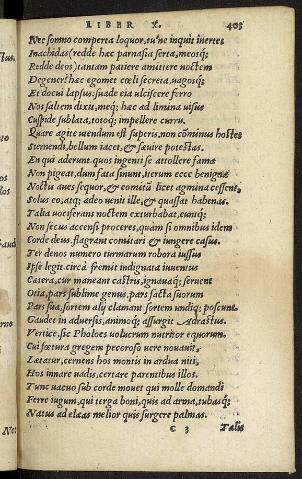 LIBER X. 403
Nec somno comperta loquor, tu'ne inquit inertes
Inachidas (redde hæc parnasia serta, meosq;
Redde deos) tantam patiere amittere noctem
Degener? hæc egomet cœli secreta, uagosq;
Et docui lapsus, suade eia ulciscere ferro
Nos saltem dixit, meq; hæc ad limina uisus
Cuspide sublata, totoq; impellere curru.
Quare agite utendum est superis, non cōminus hostes
Sternendi, bellum iacet, & sæuire potestas.
En qui aderunt quos ingenti se attollere fama
Non pigeat, dum fata sinunt, iterum ecce benignæ
Noctis aues sequor, & comitū licet agmina cessent,
Solus eo, atq; adeo uenit ille, & quassat habenas.
Talia uociferans noctem exturbabat, euntq;
Non secus accensi proceres, quàm si omnibus idem
Corde deus, flagrant comitari & iungere casus.
Ter denos numero turmarum robora iussus
Ipse legit, circà fremit indignata iuuentus
Cætera, cur maneant castris, ignauaq; seruent
Otia, pars sublime genus, pars facta suorum
Pars sua, sortem alij clamant sortem undiq; poscunt.
Gaudet in aduersis, animoq; assurgit Adrastus.
Vertice, sic Pholoes uolucrum nutritor equorum,
Cui fœtura gregem pecoroso uere nouauit,
Lætatur, cernens hos montis in ardua niti,
Hos innare uadis, certare parentibus illos.
Tunc uacuo sub corde mouet qui molle domandi
Ferre iugum, qui terga boni, quis ad arma, tubasq;
Natus ad elæas melior quis surgere palmas.
C 3 Talis